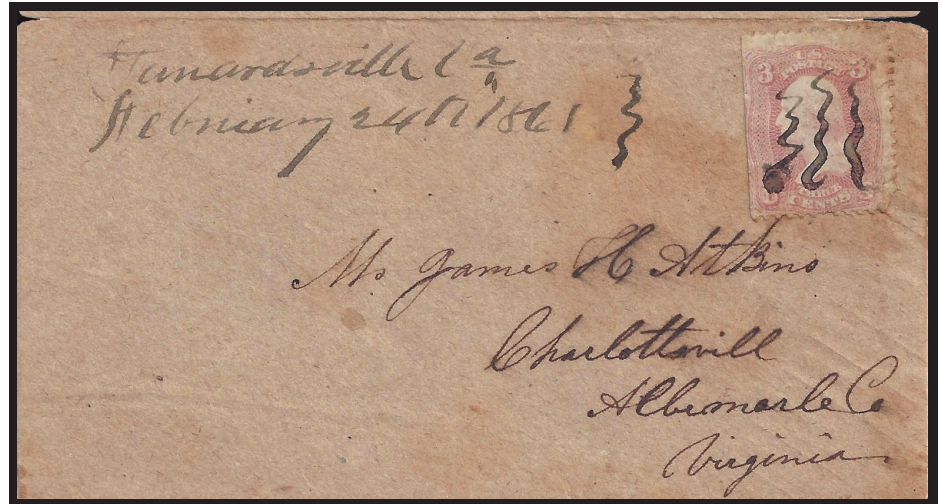 Stanardsville Va
February 24th 1861
U.S.
POSTAGE
3 3
CENTS
Mr James H Atkins
Charlottsvill
Albemarle Co
Virginia